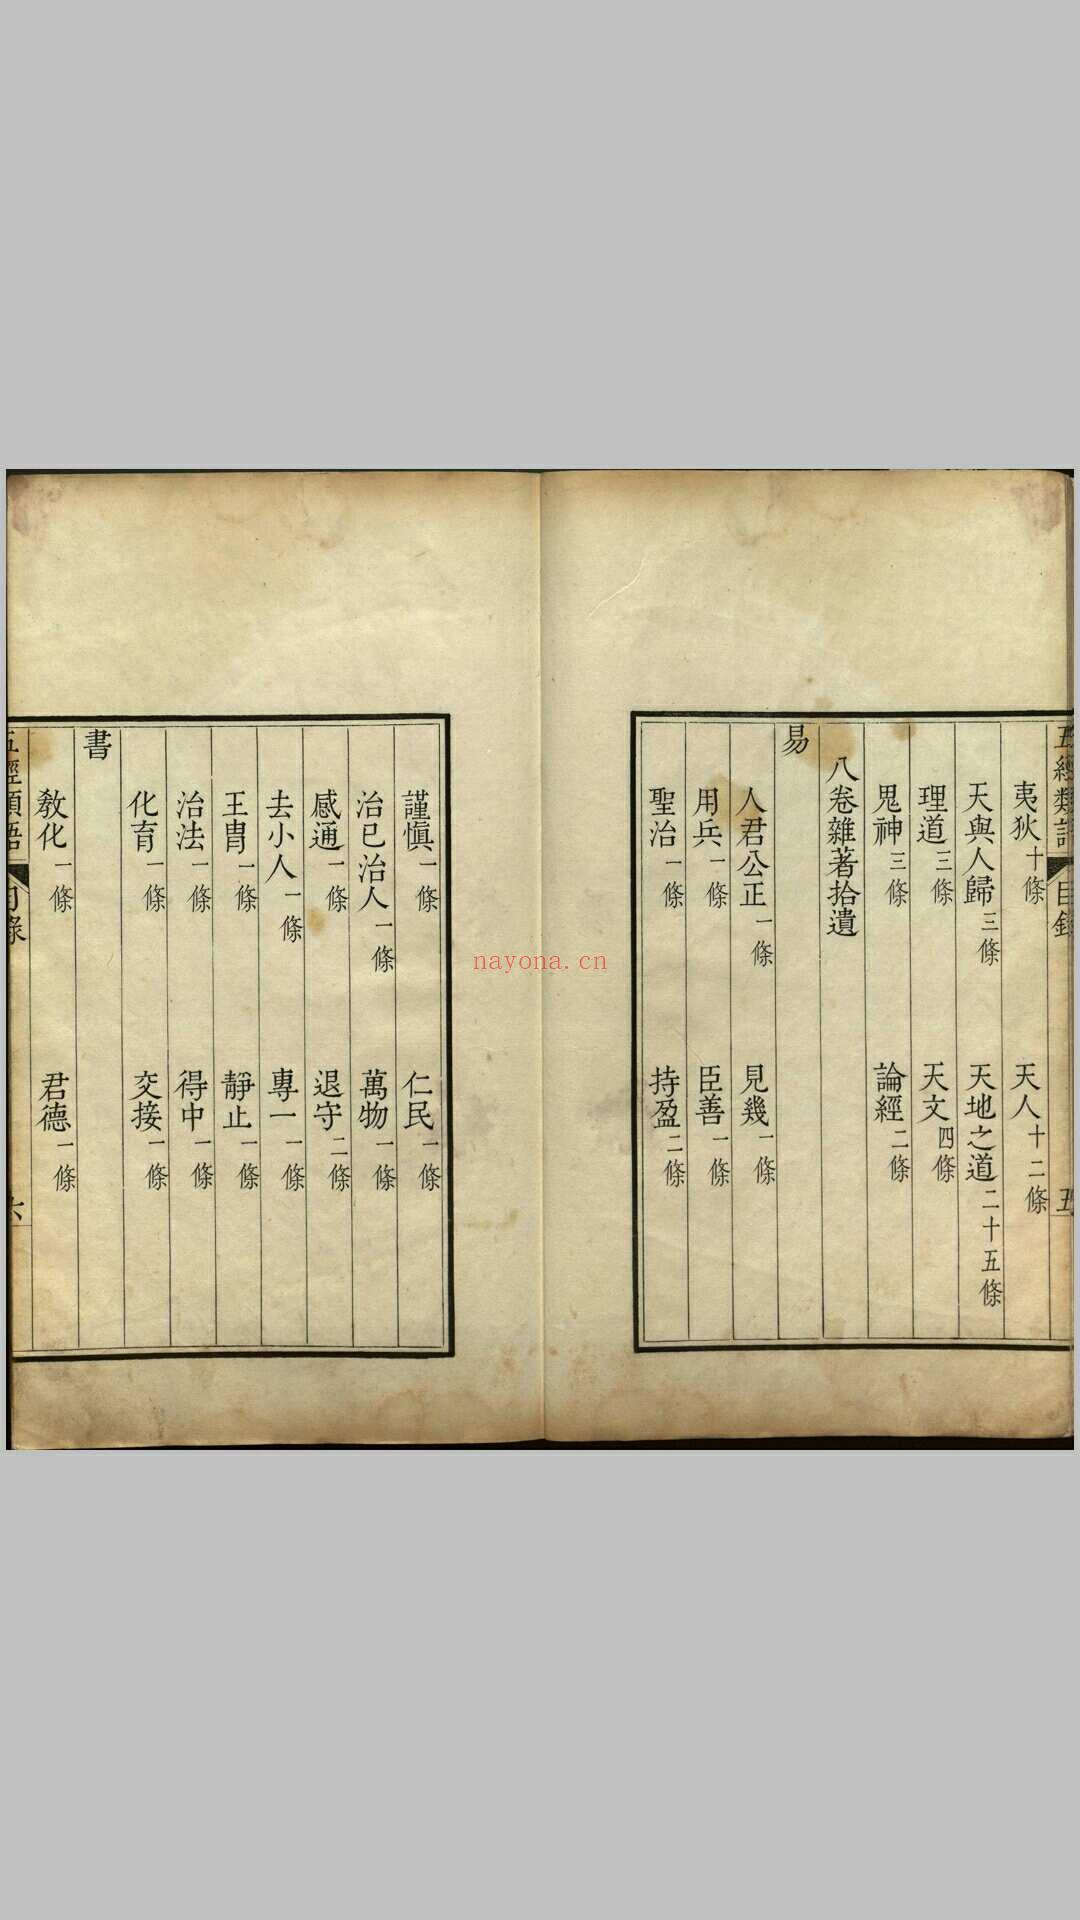 五經類語 目錄 五
夷狄十條 天人十二條
天與人歸三條 天地之道二十五條
理道三條 天文四條
鬼神三條 論經二條
八卷雜著拾遺
易
人君公正一條 見幾一條
用兵一條 臣善一條
聖治一條 持盈二條
謹愼一條 仁民一條
治已治人一條 萬物一條
感通一條 退守二條
去小人一條 專一一條
王胄一條 靜止一條
治法一條 得中一條
化育一條 交接一條
書
教化一條 君德一條
五經類語 目錄 六
nayona.cn